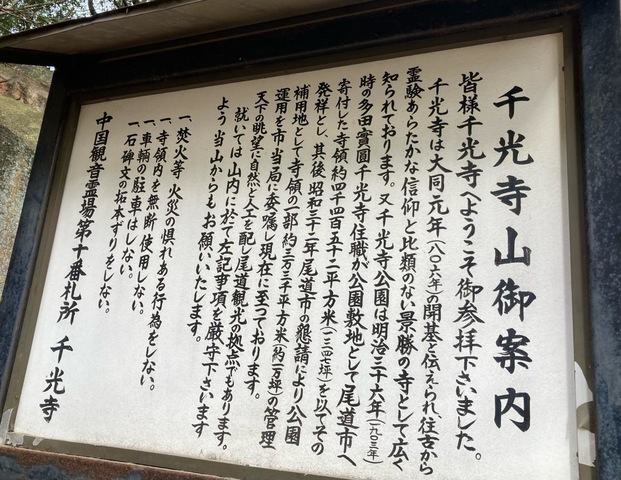 千光寺山御案内
皆様千光寺へようこそ御参拝下さいました。
千光寺は大同元年(八〇六年)の開基と伝えられ、往古から
霊験あらたかな信仰と比類のない景勝の寺として広く
知られております。又千光寺公園は明治三十六年(一九〇三年)
時の多田實圓千光寺住職が公園敷地として尾道市へ
寄付した寺領約四千四百五十二平方米(一三四七坪)を以てその
発祥とし、其後昭和三十二年尾道市の懇請により公園
補用地として寺領の一部約三万三千平方米(約一万坪)の管理
運用を市当局に委嘱し現在に至っております。
天下の眺望に自然と人工を配し尾道観光の拠点でもあります。
就いては山内に於て左記事項を厳守下さいます
よう当山からもお願いいたします。
一、焚火等火災の惧れある行為をしない。
一、寺領内を無断使用しない。
一、車輌の駐車はしない。
一、石碑文の拓本ずりをしない。
中国観音霊場第十番札所 千光寺